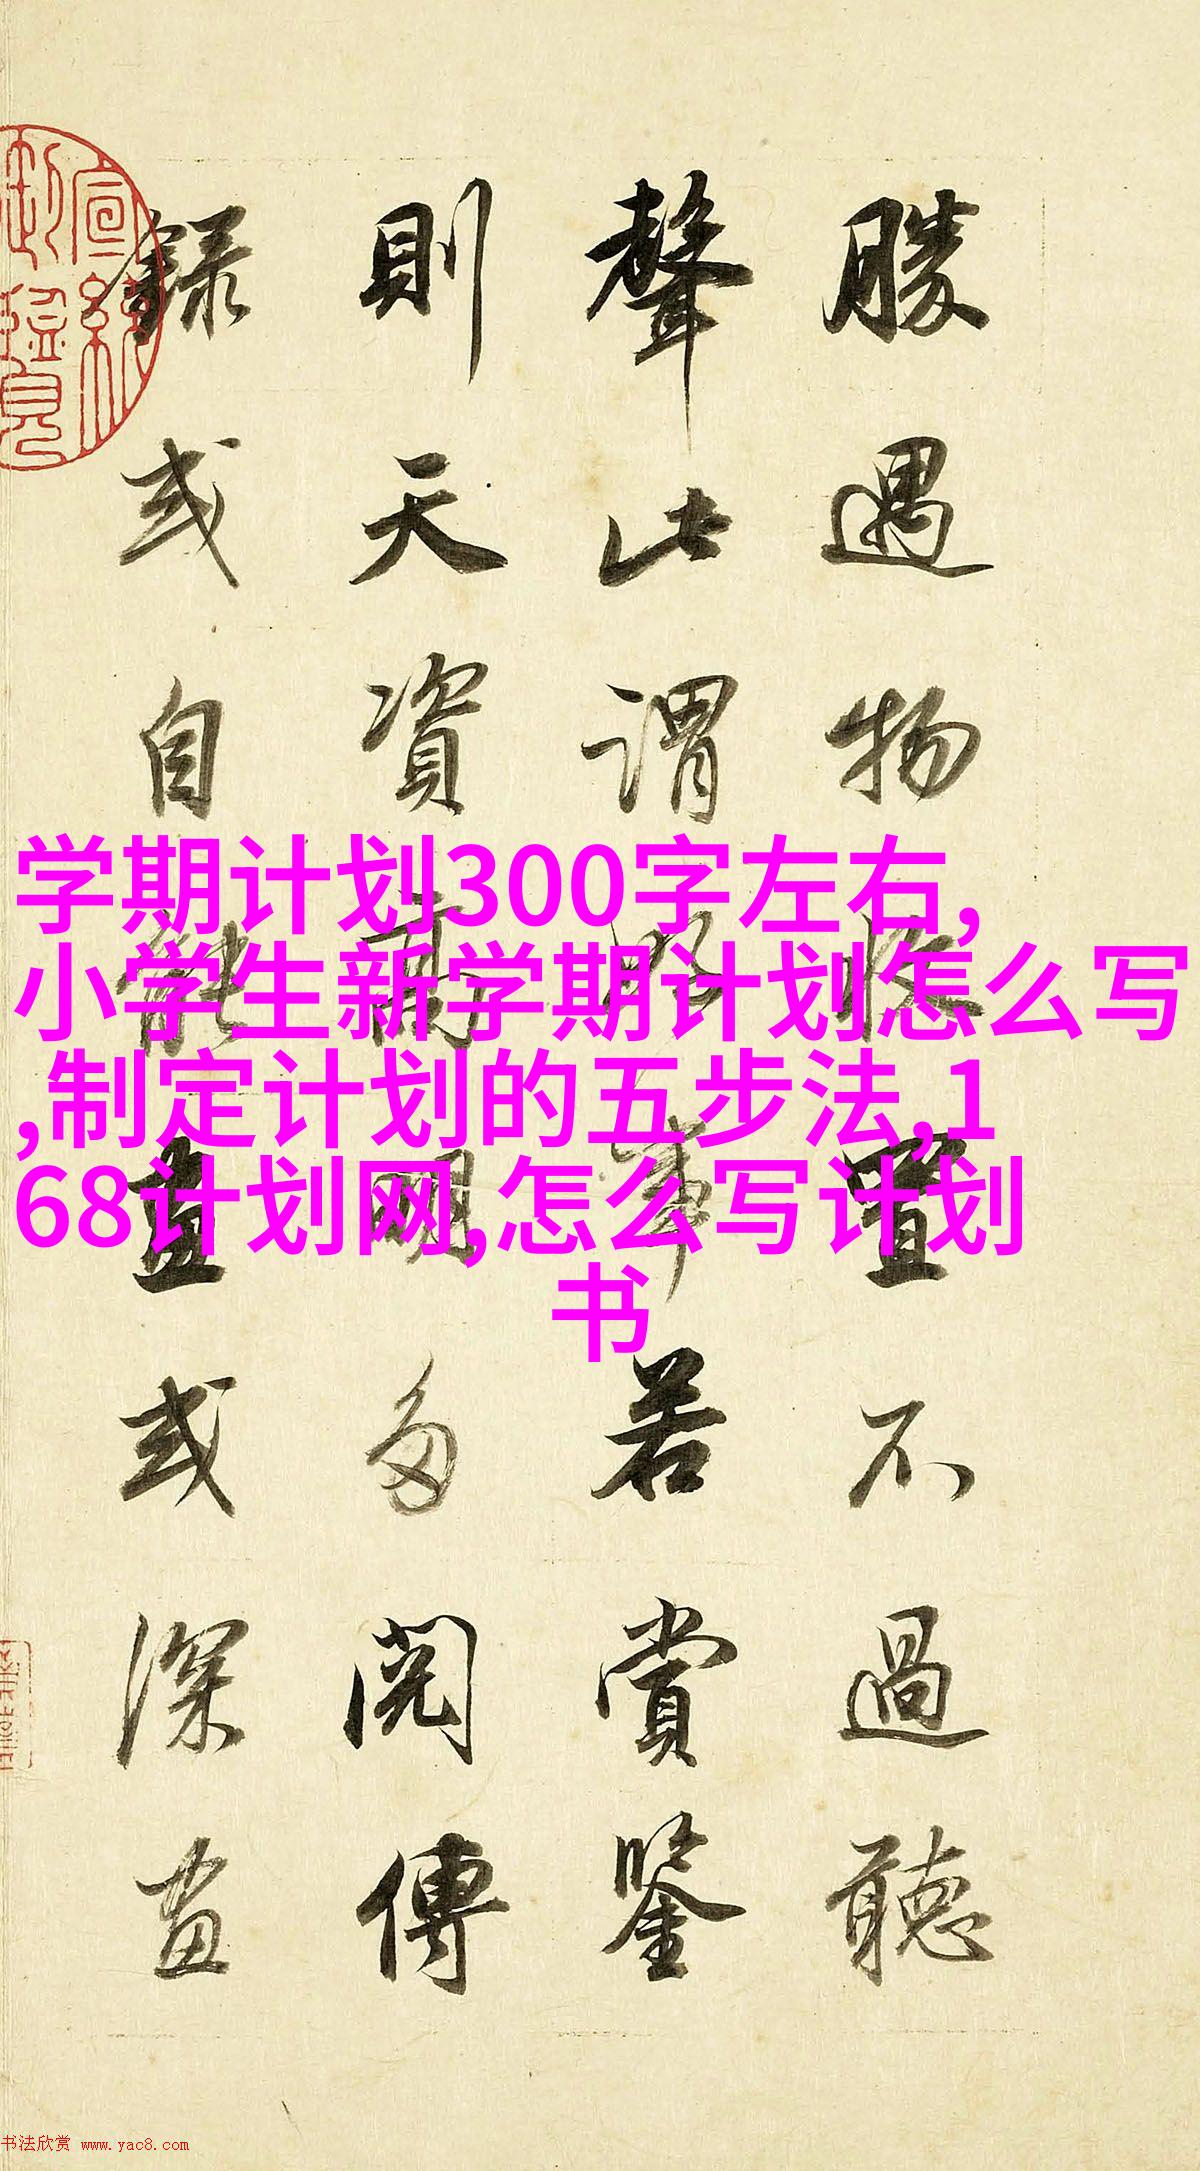 勝遇物收置不過聽
聲此謂好事若賞鑒
則天資高明多閱傳
錄或自能畫或深畫
宣統
御覽
学期计划300字左右,
小学生新学期计划怎么写
,制定计划的五步法,1
68计划网,怎么写计划
书
书法欣赏 www.yac8.com